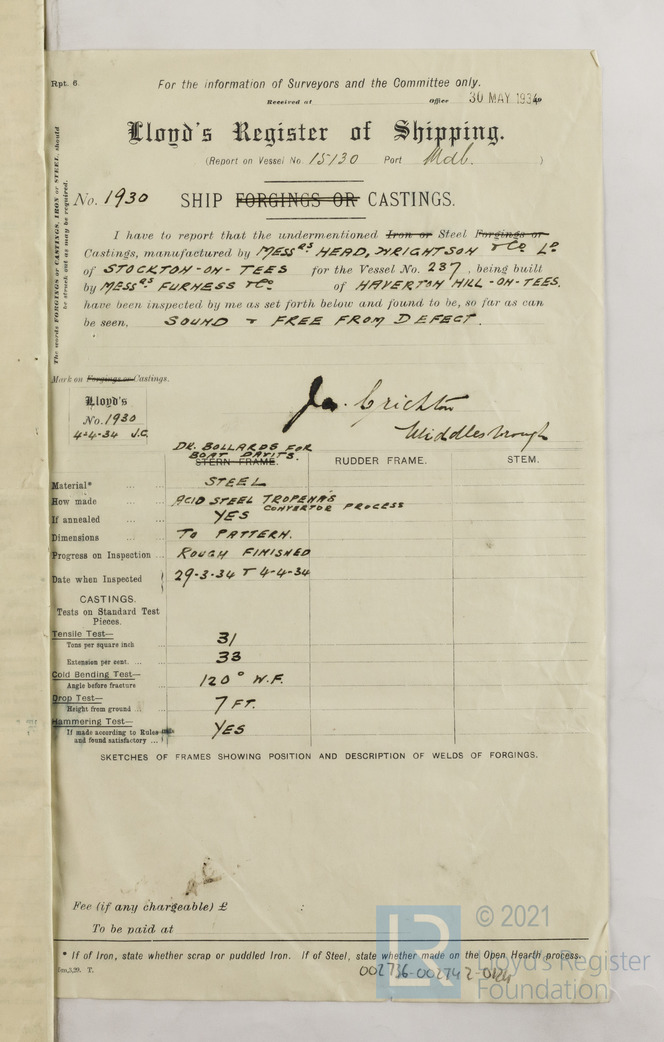 Rpt. 6.
For the information of Surveyors and the Committee only.
Received at Office 30 MAY 1934
Lloyd's Register of Shipping.
(Report on Vessel No. 15130 Port Mdb. )
No. 1930 SHIP FORGINGS OR CASTINGS.
The words FORGINGS or CASTINGS, IRON or STEEL, should
be struck out as may be required.
I have to report that the undermentioned Iron or Steel Forgings or
Castings, manufactured by MESSRS HEAD, WRIGHTSON & CO LD
of STOCKTON-ON-TEES for the Vessel No. 237, being built
by MESSRS FURNESS & CO of HAVERTON HILL-ON-TEES.
have been inspected by me as set forth below and found to be, so far as can
be seen, SOUND & FREE FROM DEFECT.
Mark on Forgings or Castings.
Lloyd's
No. 1930
4-4-34 J.C.
Jas. Crichton
Middlesbrough
DK. BOLLARDS FOR
BOAT DAVITS.
STERN FRAME. RUDDER FRAME. STEM.
Material* ... ... STEEL
How made ... ACID STEEL TROPENAS
CONVERTOR PROCESS
If annealed ... ... YES
Dimensions ... TO PATTERN.
Progress on Inspection ... ROUGH FINISHED
Date when Inspected 29-3-34 & 4-4-34
CASTINGS.
Tests on Standard Test
Pieces.
Tensile Test—
Tons per square inch 31
Extension per cent. ... ... 33
Cold Bending Test—
Angle before fracture 120° N.F.
Drop Test—
Height from ground ... 7 FT.
Hammering Test—
If made according to Rules YES
and found satisfactory ...
SKETCHES OF FRAMES SHOWING POSITION AND DESCRIPTION OF WELDS OF FORGINGS.
Fee (if any chargeable) £ :
To be paid at
* If of Iron, state whether scrap or puddled Iron. If of Steel, state whether made on the Open Hearth process.
3,29. T.
002736-002742-0124
LR
© 2021
Lloyd's Register
Foundation